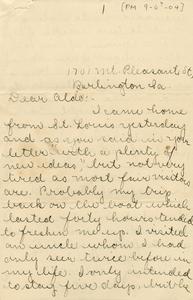 1 [PM 9-6-04]
1701 Mt. Pleasant St,
Burlington Ia.
Dear Aldo:-
I came home
from St. Louis yesterday
and as you said in your
letter with a plenty of
new ideas," but not very
tired as most fair visitors
are. Probably my trip
back on the boat which
lasted forty hours tended
to freshen me up. I visited
an uncle whom I had
only seen twice before in
my life. I only intended
to stay five days, but he